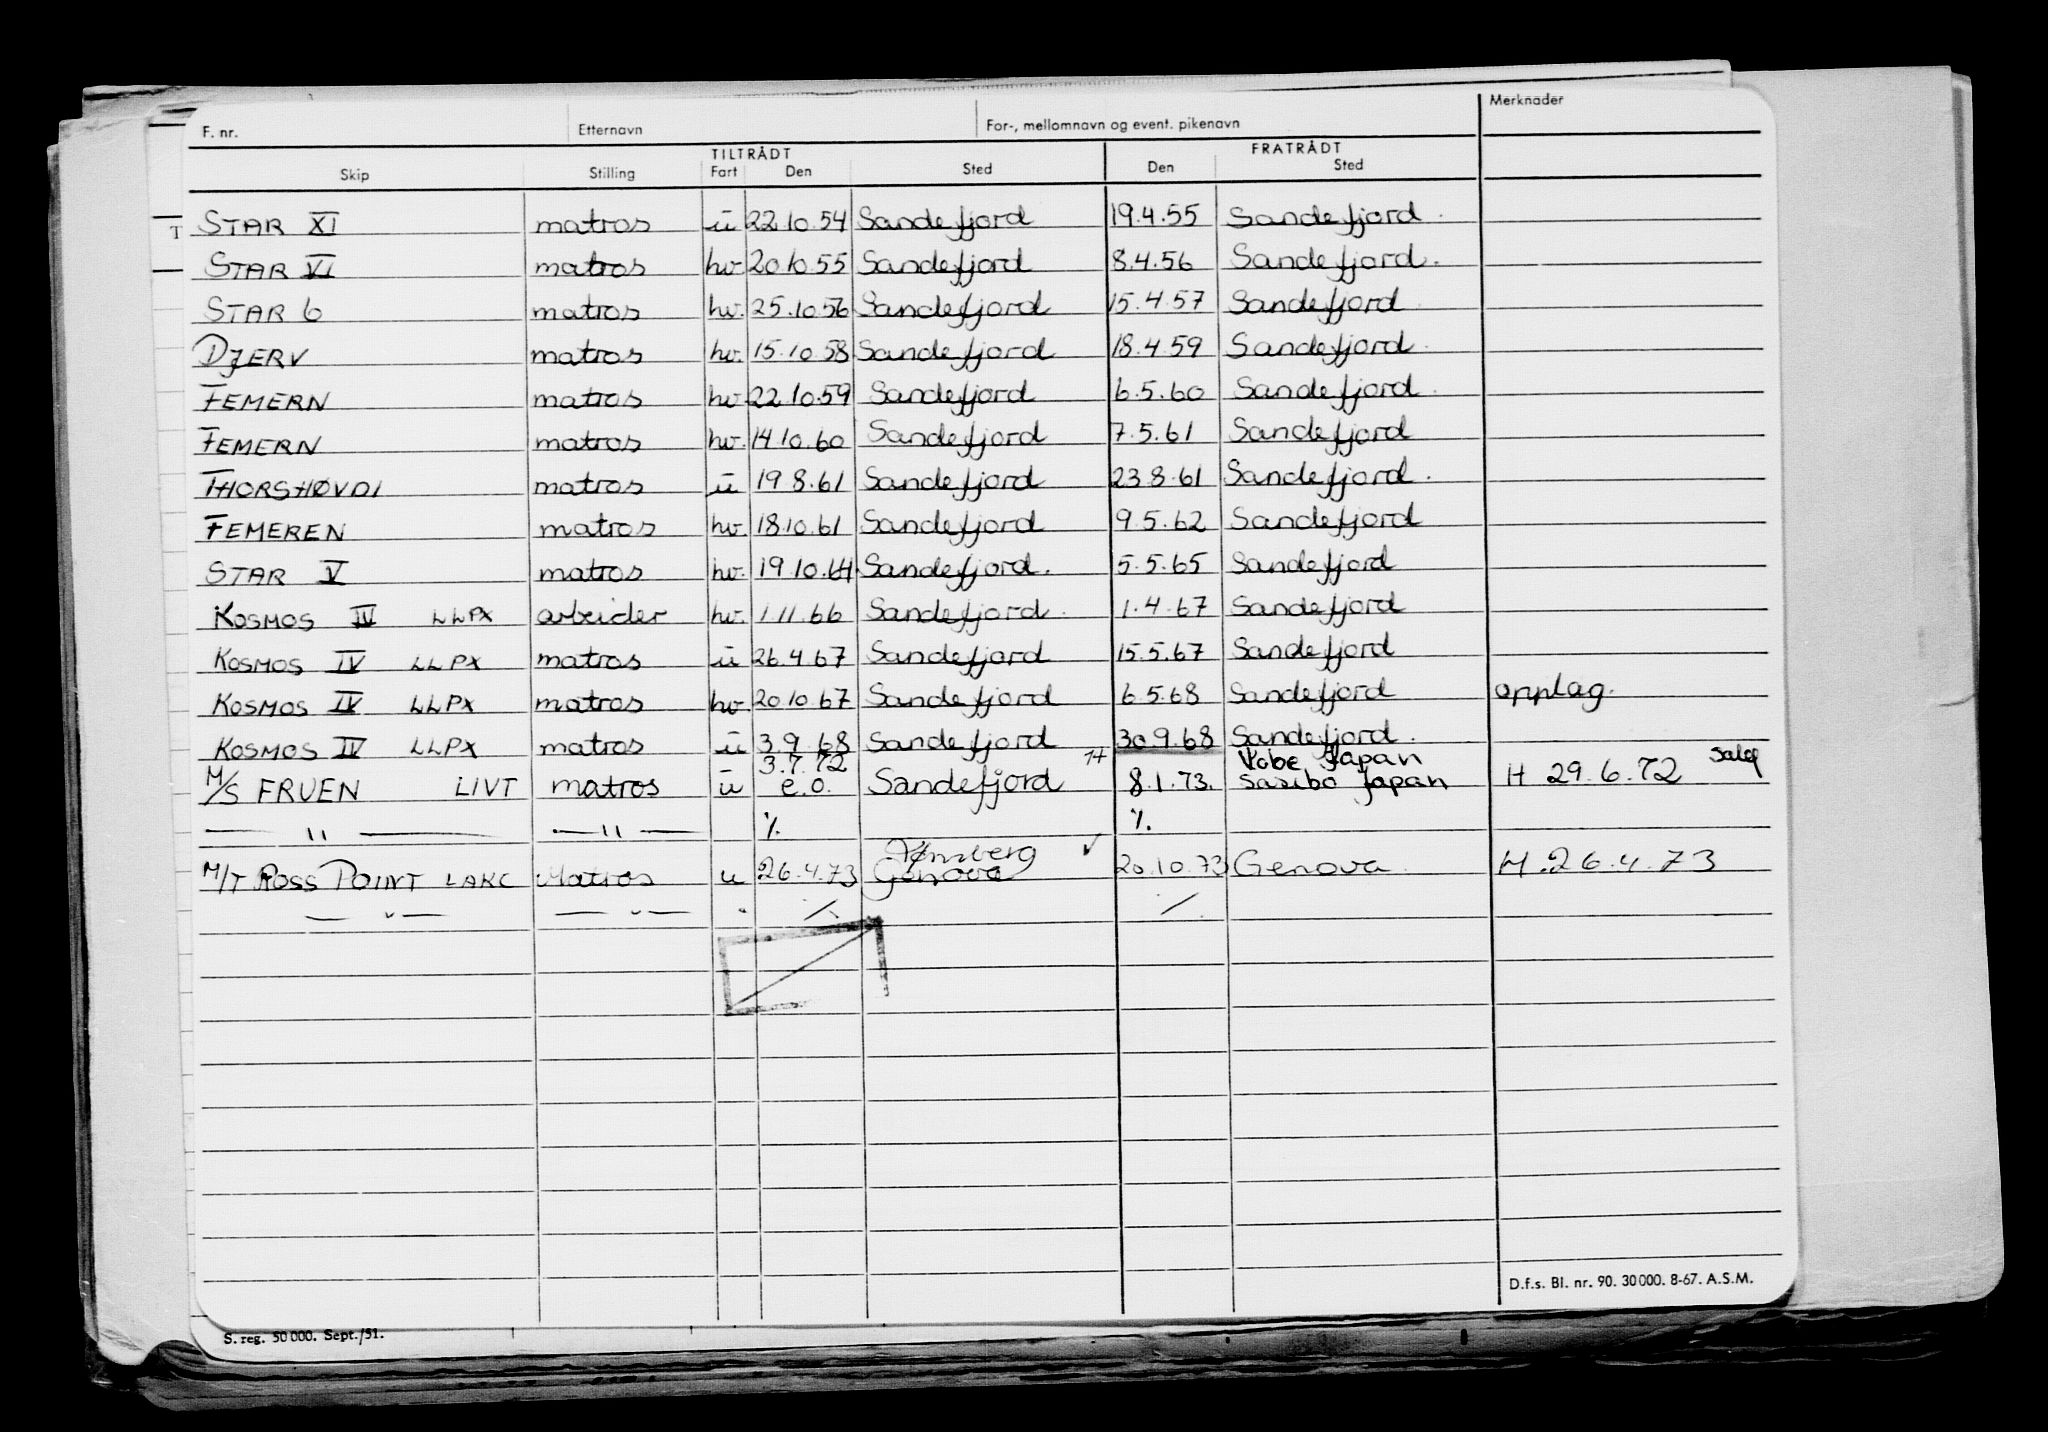 F. nr. Etternavn For-, mellomnavn og event. pikenavn Merknader
TILTRÅDT FRATRÅDT
Skip Stilling Fart Den Sted Den Sted
STAR XI matros ū 22.10.54 Sandefjord 19.4.55 Sandefjord
T
STAR VI matros hv. 20.10.55 Sandefjord 8.4.56 Sandefjord.
STAR 6 matros hv. 25.10.56 Sandefjord 15.4.57 Sandefjord
DJERV matros hv. 15.10.58 Sandefjord 18.4.59 Sandefjord
FEMERN matros hv. 22.10.59 Sandefjord 6.5.60 Sandefjord
FEMERN matros hv. 14.10.60 Sandefjord 7.5.61 Sandefjord
THORSHØVDI matros ū 19.8.61 Sandefjord 23.8.61 Sandefjord.
FEMEREN matros hv. 18.10.61 Sandefjord 9.5.62 Sandefjord
STAR V matros hv. 19.10.64. Sandefjord. 5.5.65 Sandefjord
KOSMOS IV LLPX arbeider hv. 1.11.66 Sandefjord 1.4.67 Sandefjord
KOSMOS IV LLPX matros ū 26.4.67 Sandefjord 15.5.67 Sandefjord
KOSMOS IV LLPX matros hv 20.10.67 Sandefjord 6.5.68 Sandefjord opplag.
KOSMOS IV LLPX matros ū 3.9.68 Sandefjord 30.9.68 Sandefjord.
3.7.72 Kobe Japan
M/S FRUEN LIVT matros ū e.o. Sandefjord 8.1.73. Sasebo Japan H 29.6.72
— " — — " — ⁒ ⁒
Tønsberg ✓
M/T ROSS POINT LAKC Matros u 26.4.73 Genova 20.10.73 Genova H.26.4.73
— " — — " — " ⁒ ⁒
D.f.s. Bl. nr. 90. 30 000. 8-67. A.S.M.
S. reg. 50 000. Sept./51.